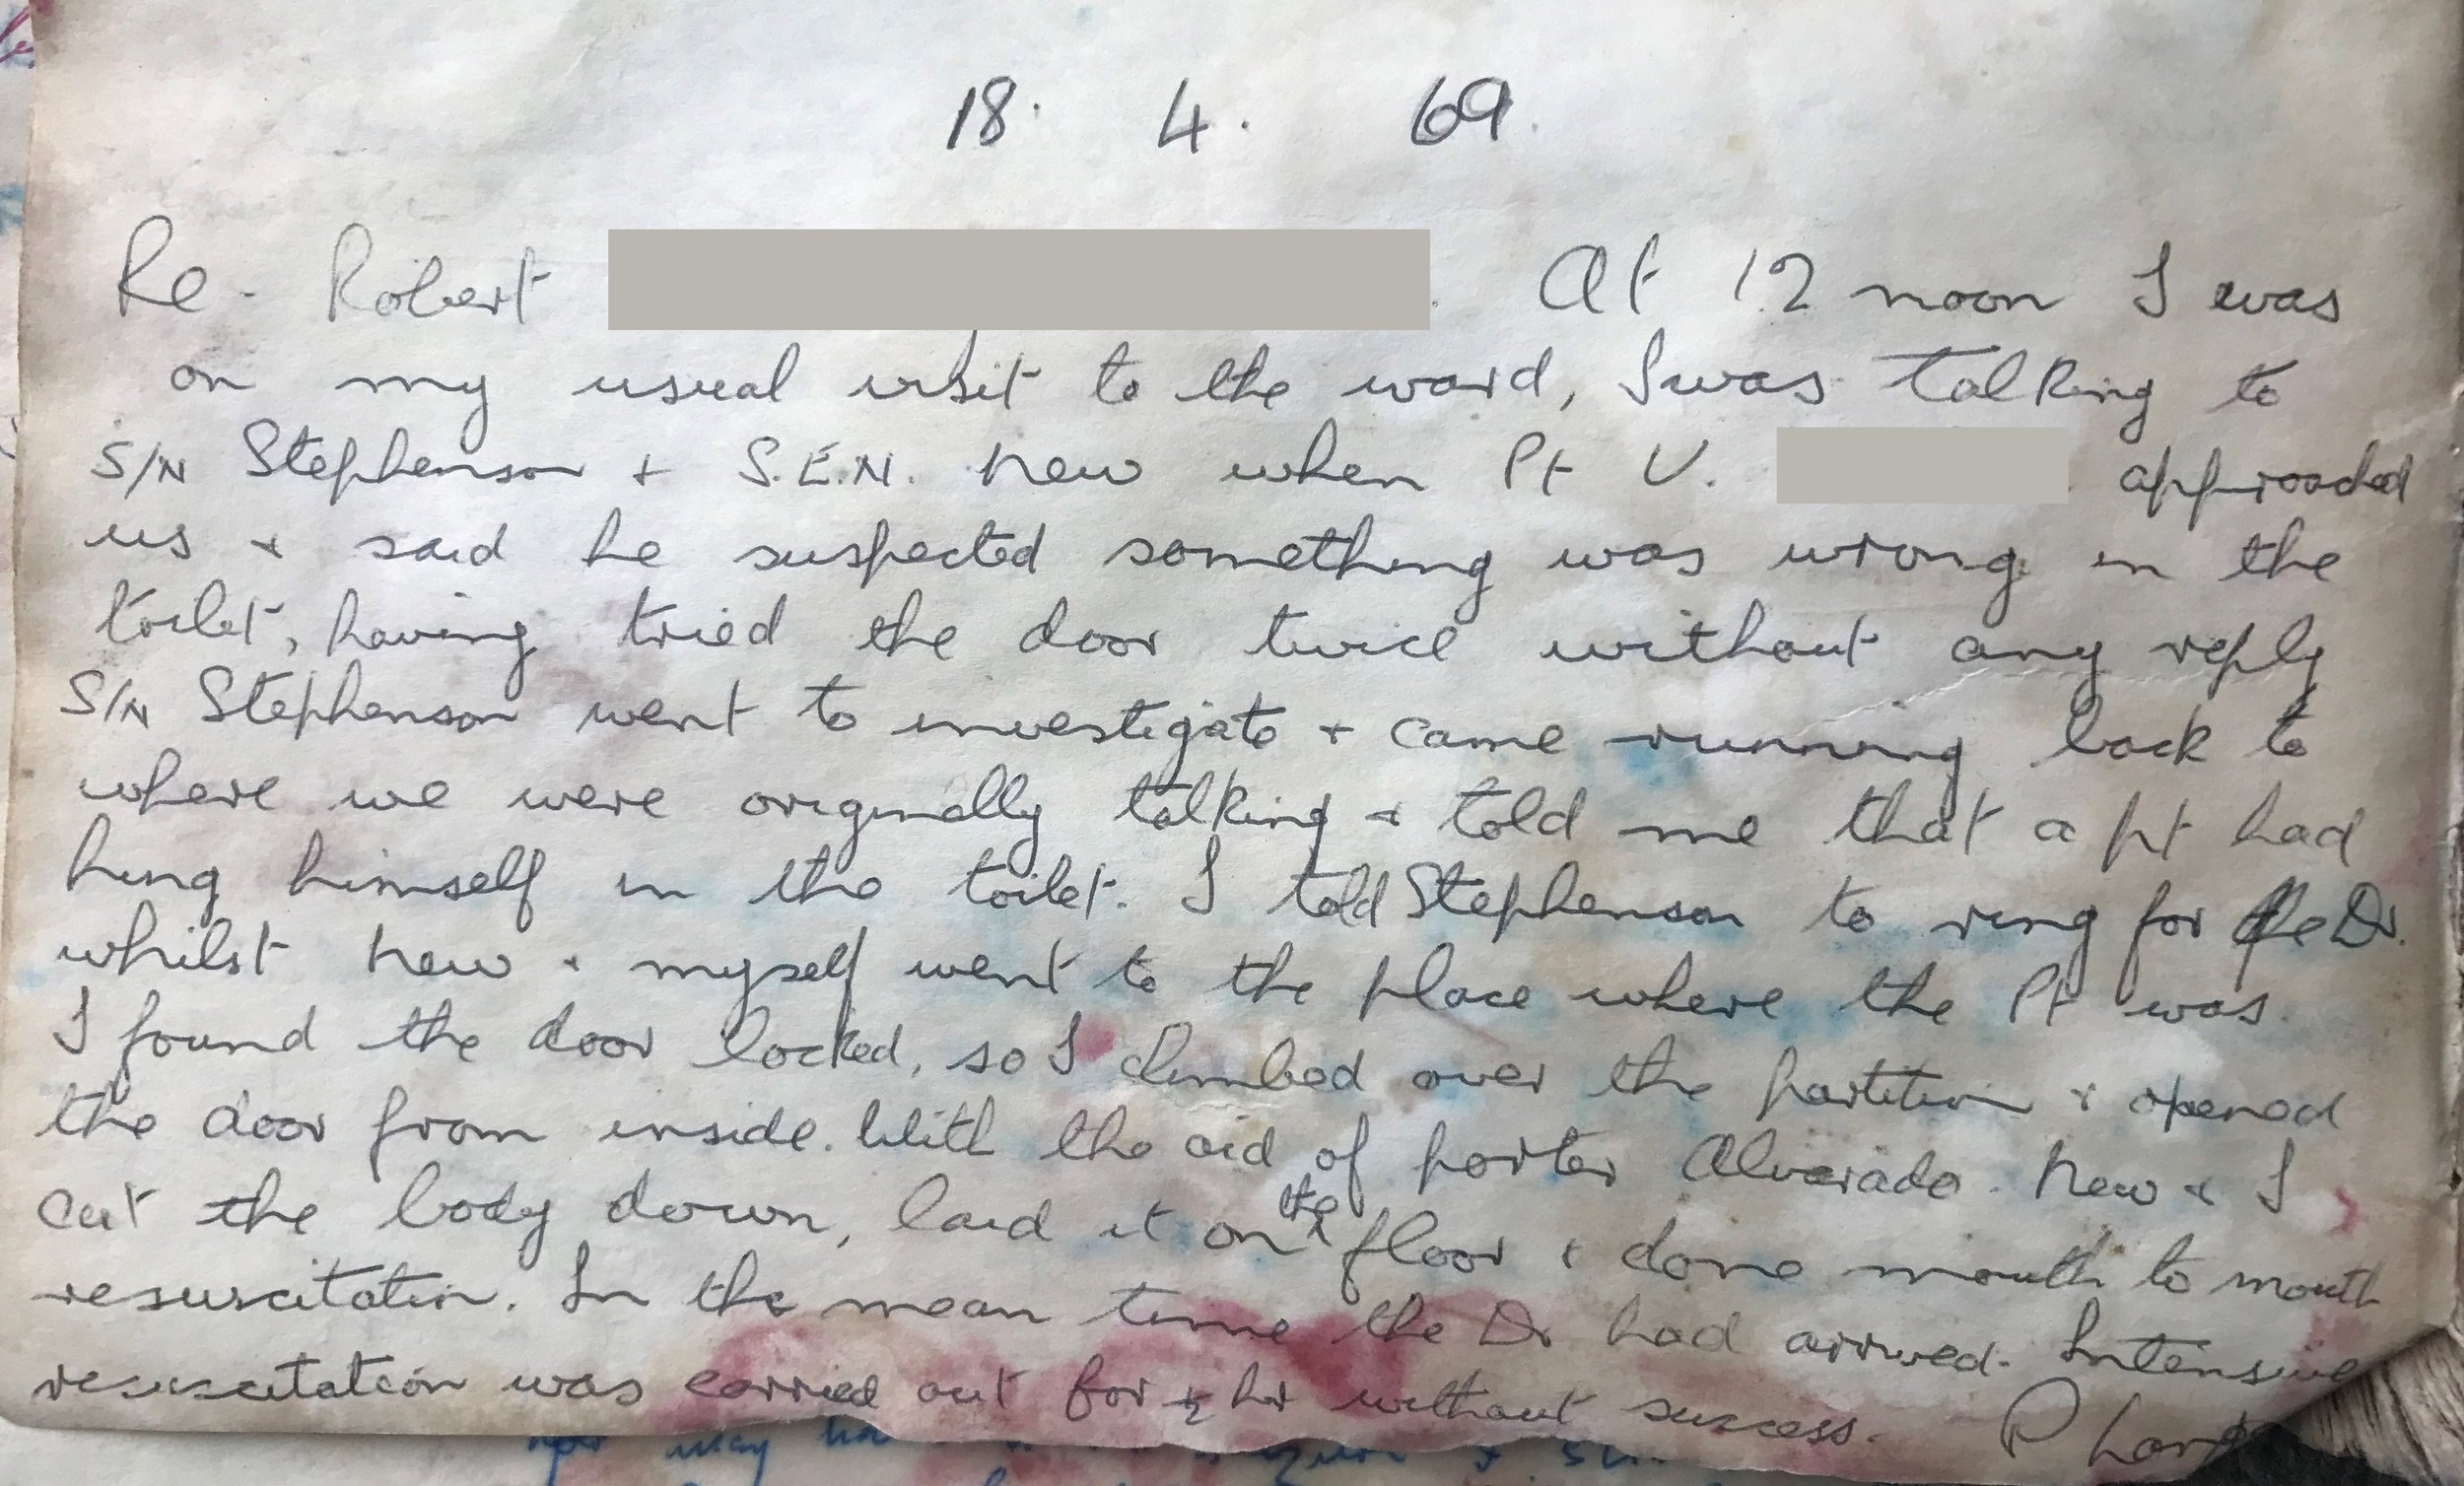 18. 4. 69.
Re - Robert . At 12 noon I was
on my usual visit to the ward, I was talking to
S/N Stephenson + S.E.N. New when Pt V. approached
us + said he suspected something was wrong in the
toilet, having tried the door twice without any reply
S/N Stephenson went to investigate + came running back to
where we were originally talking + told me that a pt had
hung himself in the toilet. I told Stephenson to ring for the Dr.
whilst New + myself went to the place where the Pt was.
I found the door locked, so I climbed over the partition + opened
the door from inside. With the aid of porter Alvarado. New + I
cut the body down, laid it on the floor + done mouth to mouth
resuscitation. In the mean time the Dr had arrived. Intensive
resuscitation was carried out for ½ hr without success. P
may